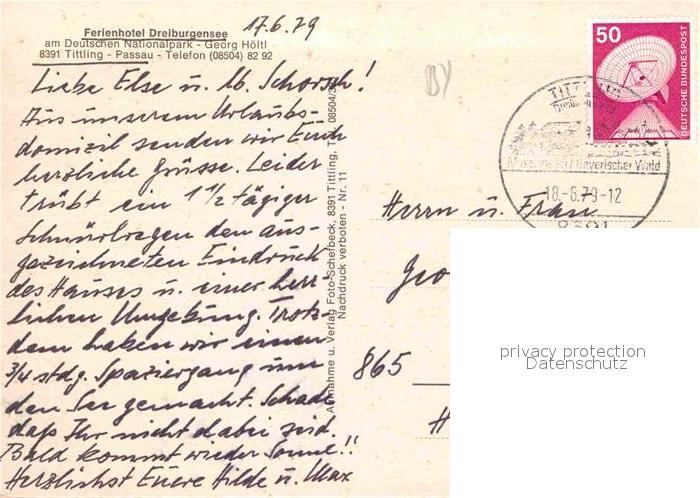 Ferienhotel Dreiburgensee
am Deutschen Nationalpark - Georg Höltl
8391 Tittling - Passau - Telefon (08504) 82 92
17.6.79
Liebe Else u. lb. Schorsch!
Aus unserem Urlaubs-
domizil senden wir Euch
herzliche Grüsse. Leider
trübt ein 1 1/2 tägiger
Schnürlregen den aus-
gezeichneten Eindruck
des Hauses u. einer herr-
lichen Umgebung. Trotz-
dem haben wir einen
3/4 stdg. Spaziergang um
den See gemacht. Schade
daß Ihr nicht dabei seid.
Bald kommt wieder Sonne!!
Herzlichst Euere Hilde u. Max
Aufnahme u. Verlag Foto-Schefbeck, 8391 Tittling, 08504/
Nachdruck verboten - Nr. 11
BY
50
DEUTSCHE BUNDESPOST
TITTLING
Museumsdorf Bayerischer Wald
18.-6.79-12
8391
Herrn u. Frau
Geo
865
H
privacy protection
Datenschutz